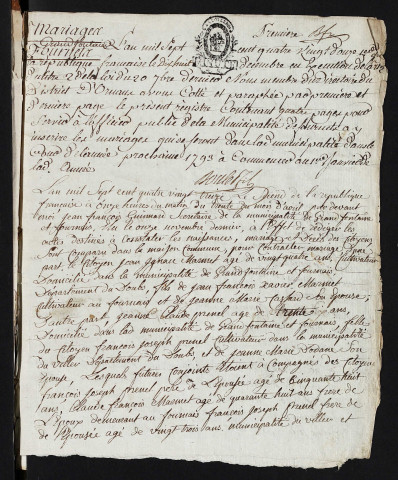 Mariages
Première
L'an mil sept cent quatre vingt douze
la république française le dixhuit décembre en Execution de l'article
du titre 2 de la loi du 20 7bre dernier Nous membre du Directoire du
District d'Ornans avons Cotté et paraphé par premiere et
derniere page le present registre Contenant quatre pages pour
Servir à l'officier public de la Municipalité de
inscrire les mariages qui se feront dans lad. municipalité dans le
de l'année prochaine 1793 à Commencer au 1er janvier de
lad. année
L'an mil sept cent quatre vingt treize Le second de la république
française à onze heures du matin du trente du mois d'avril par devant
moi jean françois Guinnais Secretaire de la municipalité de Grandfontaine
et fournets, élu le onze novembre dernier, à l'effet de rédiger les
actes destinés à constater les naissances, mariages et décès des citoyens
Sont comparu dans la maison Commune, pour contracter mariage D'une
part, le Citoyen jean ignace Masmet age de vingtquatre ans, cultivateur
Domicilié dans la municipalité de Grandfontaine et fournais
Département du Doubs, fils de jean françois Xavier Masmet
Cultivateur au fournais et de jeanne Marie son épouse,
D'autre part, jeanne Claude prenel age de trente ans,
Domiciliée dans la municipalité de Grandfontaine et fournais, fille
du Citoyen françois joseph prenel cultivateur dans la municipalité
du villers, Département du Doubs, et de jeanne Marie Dodane son
épouse, Lesquels futurs conjoints étoient accompagnés des citoyens
françois joseph prenel père de L'épouse agé de Cinquante huit
ans, Claude françois Masmet agé de quarante huit ans frère de
L'époux demeurant au fournais, françois joseph prenel frère de
de l'épousée agé de vingt trois ans, municipalité du villers et